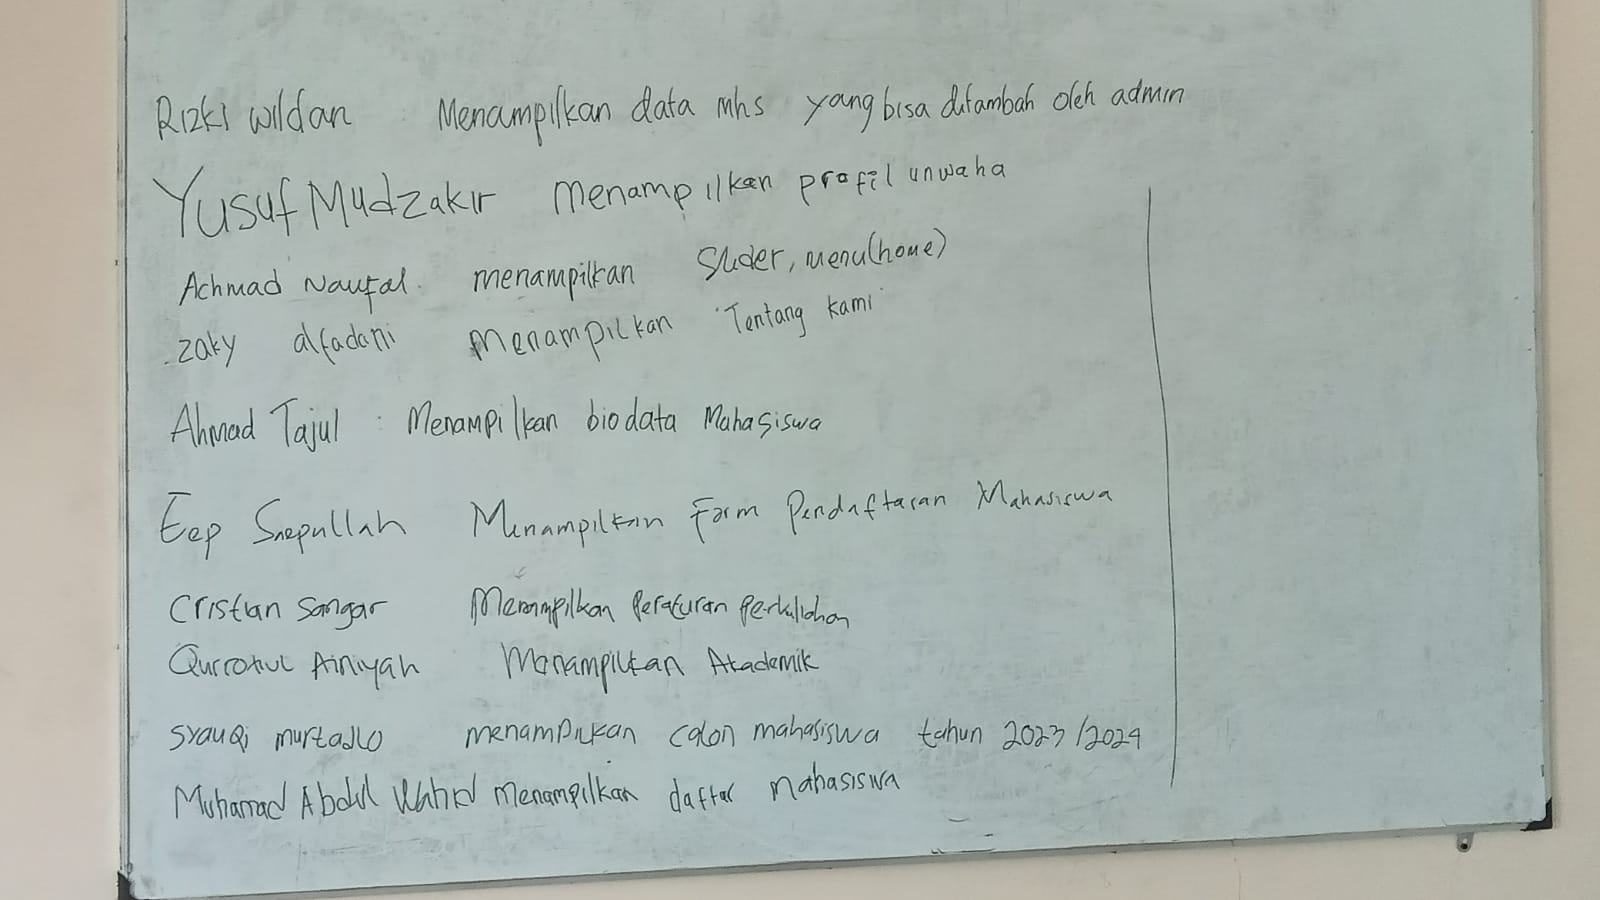 Rizki wildan : Menampilkan data mhs yang bisa ditambah oleh admin
Yusuf Mudzakir menampilkan profil unwaha
Achmad Naufal. menampilkan Slider, menu(home)
zaky alfadani menampilkan Tentang kami
Ahmad Tajul : Menampilkan biodata Mahasiswa
Eep Saepullah Menampilkan Form Pendaftaran Mahasiswa
Cristian Sangar Menampilkan Peraturan Perkuliahan
Qurrotul Ainiyah Menampilkan Akademik
Syauqi murtadlo menampilkan calon mahasiswa tahun 2023/2024
Muhammad Abdul Wahid menampilkan daftar mahasiswa